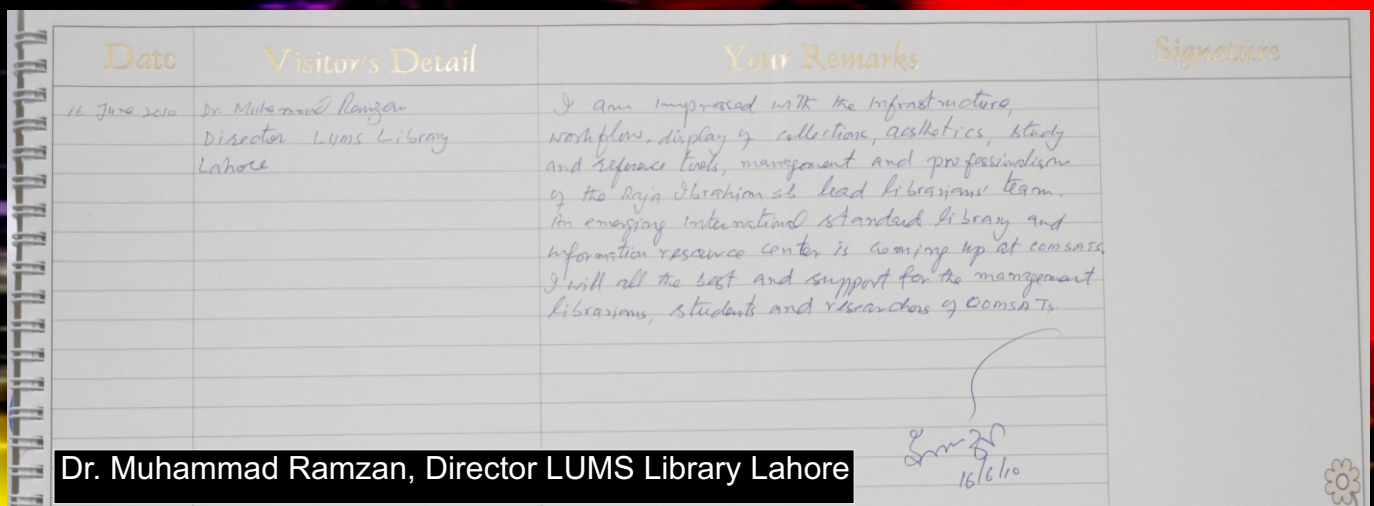 Date Visitor's Detail Your Remarks Signature
16 June 2010
Dr. Muhammad Ramzan
Director LUMS Library
Lahore
I am impressed with the infrastructure,
workflow, display of collections, aesthetics, study
and reference tools, management and professionalism
of the Raja Ibrahim sb lead librarians' team.
An emerging international standard library and
information resource center is coming up at COMSATS.
I will all the best and support for the management
librarians, students and researchers of COMSATs.
16/6/10
Dr. Muhammad Ramzan, Director LUMS Library Lahore